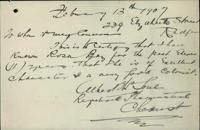 February 13th 1907
239 Elizabeth Street
To Who it may Concern
This is to Certify that I have
Known Rose for the Past Eleven
(11) years that She is of Excellent
Character & a very good Colonist
Albert
Registered
Chemist